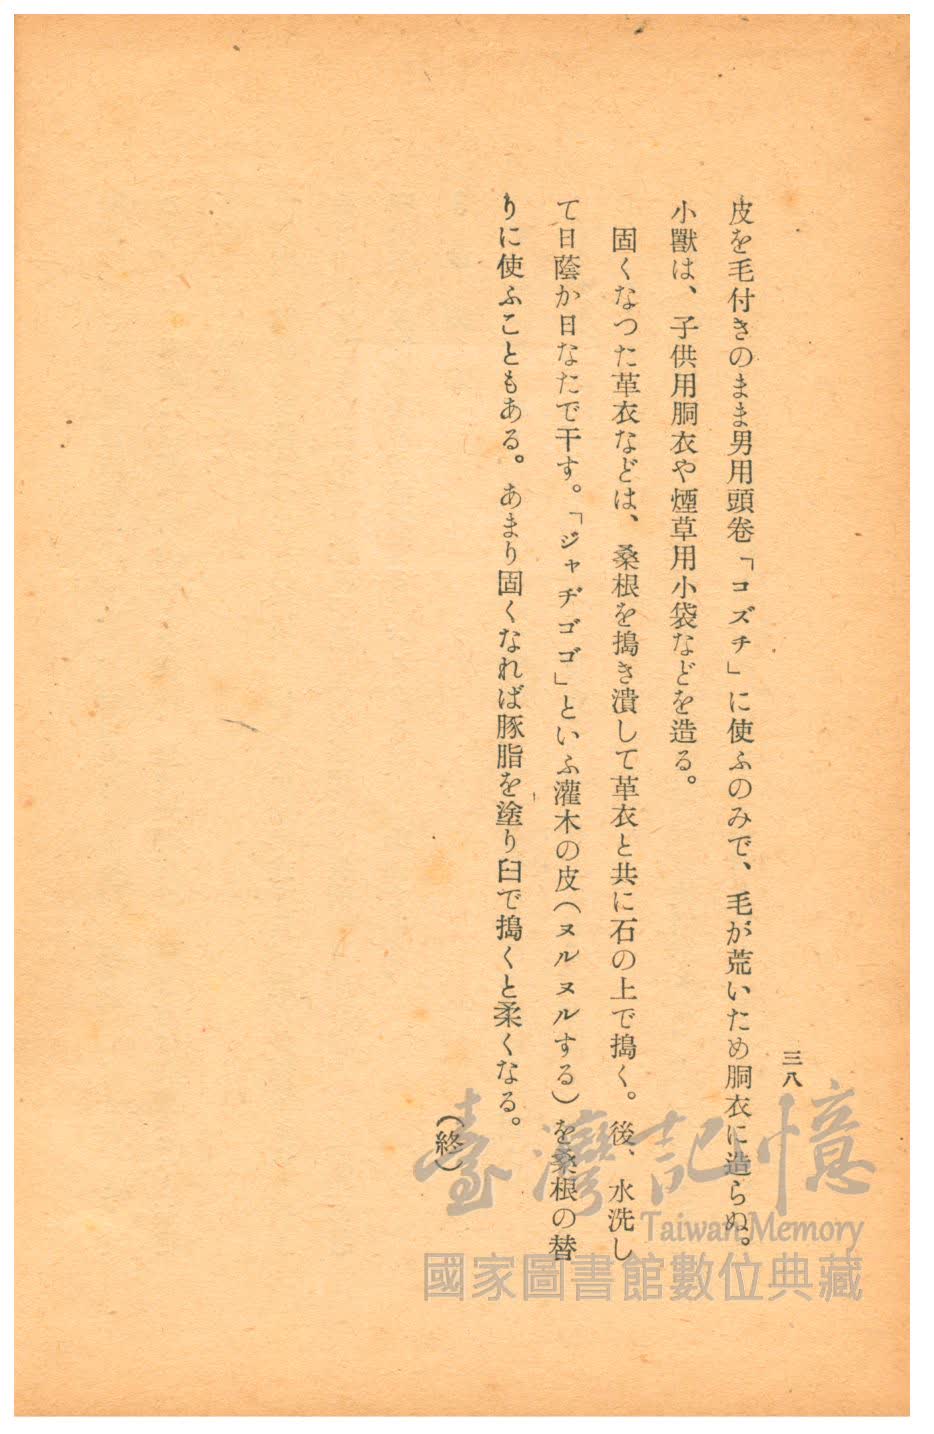 三八
皮を毛付きのまま男用頭卷「コズチ」に使ふのみで、毛が荒いため胴衣に造らぬ。
小獸は、子供用胴衣や煙草用小袋などを造る。
固くなつた革衣などは、桑根を搗き潰して革衣と共に石の上で搗く。後、水洗し
て日蔭か日なたで干す。「ジャヂゴゴ」といふ灌木の皮(ヌルヌルする)を桑根の替
りに使ふこともある。あまり固くなれば豚脂を塗り臼で搗くと柔くなる。
(終)
臺灣記憶
Taiwan Memory
國家圖書館數位典藏